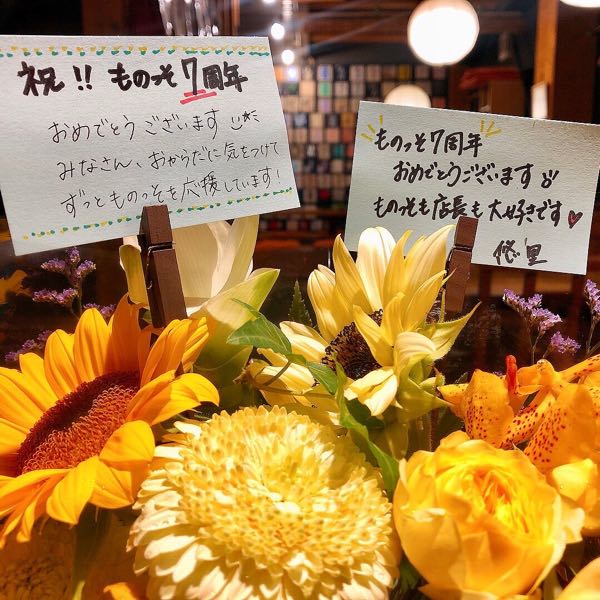 祝!! ものっそ7周年
おめでとうございます
みなさん、おからだに気をつけて
ずっとものっそを応援しています!
ものっそ7周年
おめでとうございます
ものっそも店長も大好きです♡
悠里